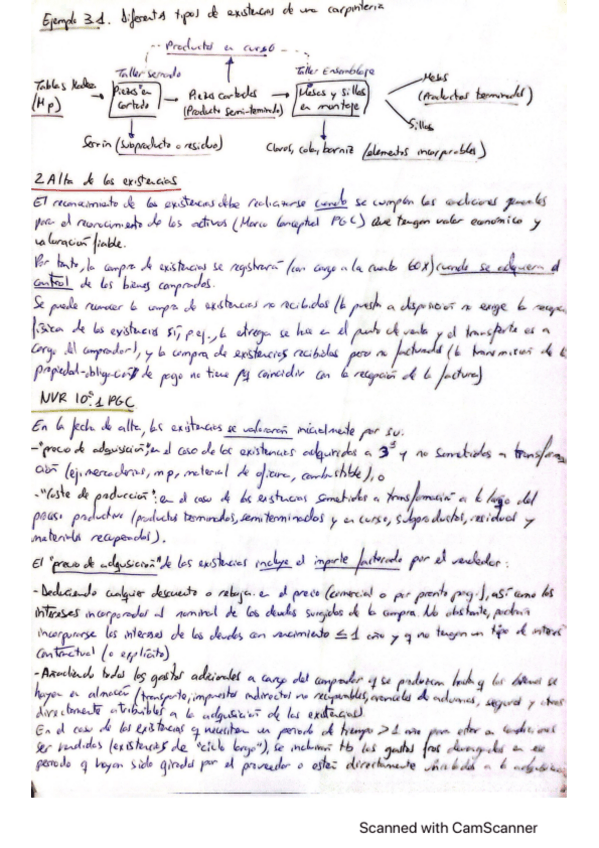 Ejemplo 3.1. Diferentes tipos de existencias de una carpintería
Productos en curso
Taller Serrado
Taller Ensamblaje
Tablas Madera (Mp)
Piezas en cortado
Piezas cortadas (Producto semi-terminado)
Mesas y sillas en montaje
Mesas
(Productos terminados)
Sillas
Serrín (subproducto o residuo)
Clavos, cola, barniz (elementos incorporables)
2 Alta de las existencias
El reconocimiento de las existencias debe realizarse cuando se cumplan las condiciones generales
para el reconocimiento de los activos (Marco Conceptual PGC) que tengan valor económico y
valoración fiable.
Por tanto, la compra de existencias se registrará (con cargo a la cuenta 60X) cuando se adquiera el
control de los bienes comprados.
Se puede reconocer la compra de existencias no recibidas (la puesta a disposición no exige la recepc
física de las existencias si, p.ej., la entrega se hace en el punto de venta y el transporte es a
cargo del comprador), y la compra de existencias recibidas pero no facturadas (la transmisión de la
propiedad-obligación de pago no tiene pq coincidir con la recepción de la factura)
NVR 10ª.1 PGC
En la fecha de alta, las existencias se valorarán inicialmente por su:
-"precio de adquisición", en el caso de las existencias adquiridas a 3ºs y no sometidas a transforma
ción (ej. mercaderías, mp, material de oficina, combustible), o
-"Coste de producción": en el caso de las existencias sometidas a transformación a lo largo del
proceso productivo (productos terminados, semiterminados y en curso, subproductos, residuos y
materiales recuperados).
El "precio de adquisición" de las existencias incluye el importe facturado por el vendedor:
-Deduciendo cualquier descuento o rebaja en el precio (comercial o por pronto pag.), así como los
intereses incorporados al nominal de las deudas surgidas de la compra. No obstante, podrán
incorporarse los intereses de las deudas con vencimiento ≤ 1 año y q no tengan un tipo de interés
contractual (o explícito)
-Añadiendo todos los gastos adicionales a cargo del comprador q se produzcan hasta q los bienes se
hayan en almacén (transporte, impuestos indirectos no recuperables, aranceles de aduanas, seguros y otros
directamente atribuibles a la adquisición de las existencias).
En el caso de las existencias q necesiten un periodo de tiempo > 1 año para estar en condiciones
ser vendidas (existencias de "ciclo largo"), se incluirán tb los gastos fros devengados en ese
periodo q hayan sido girados por el proveedor o estén directamente a la adquisición
Scanned with CamScanner